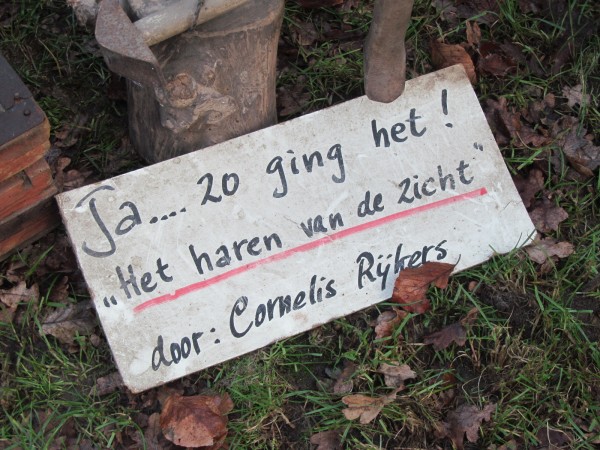 Ja.... zo ging het!
„Het haren van de zicht"
door: Cornelis Rijkers